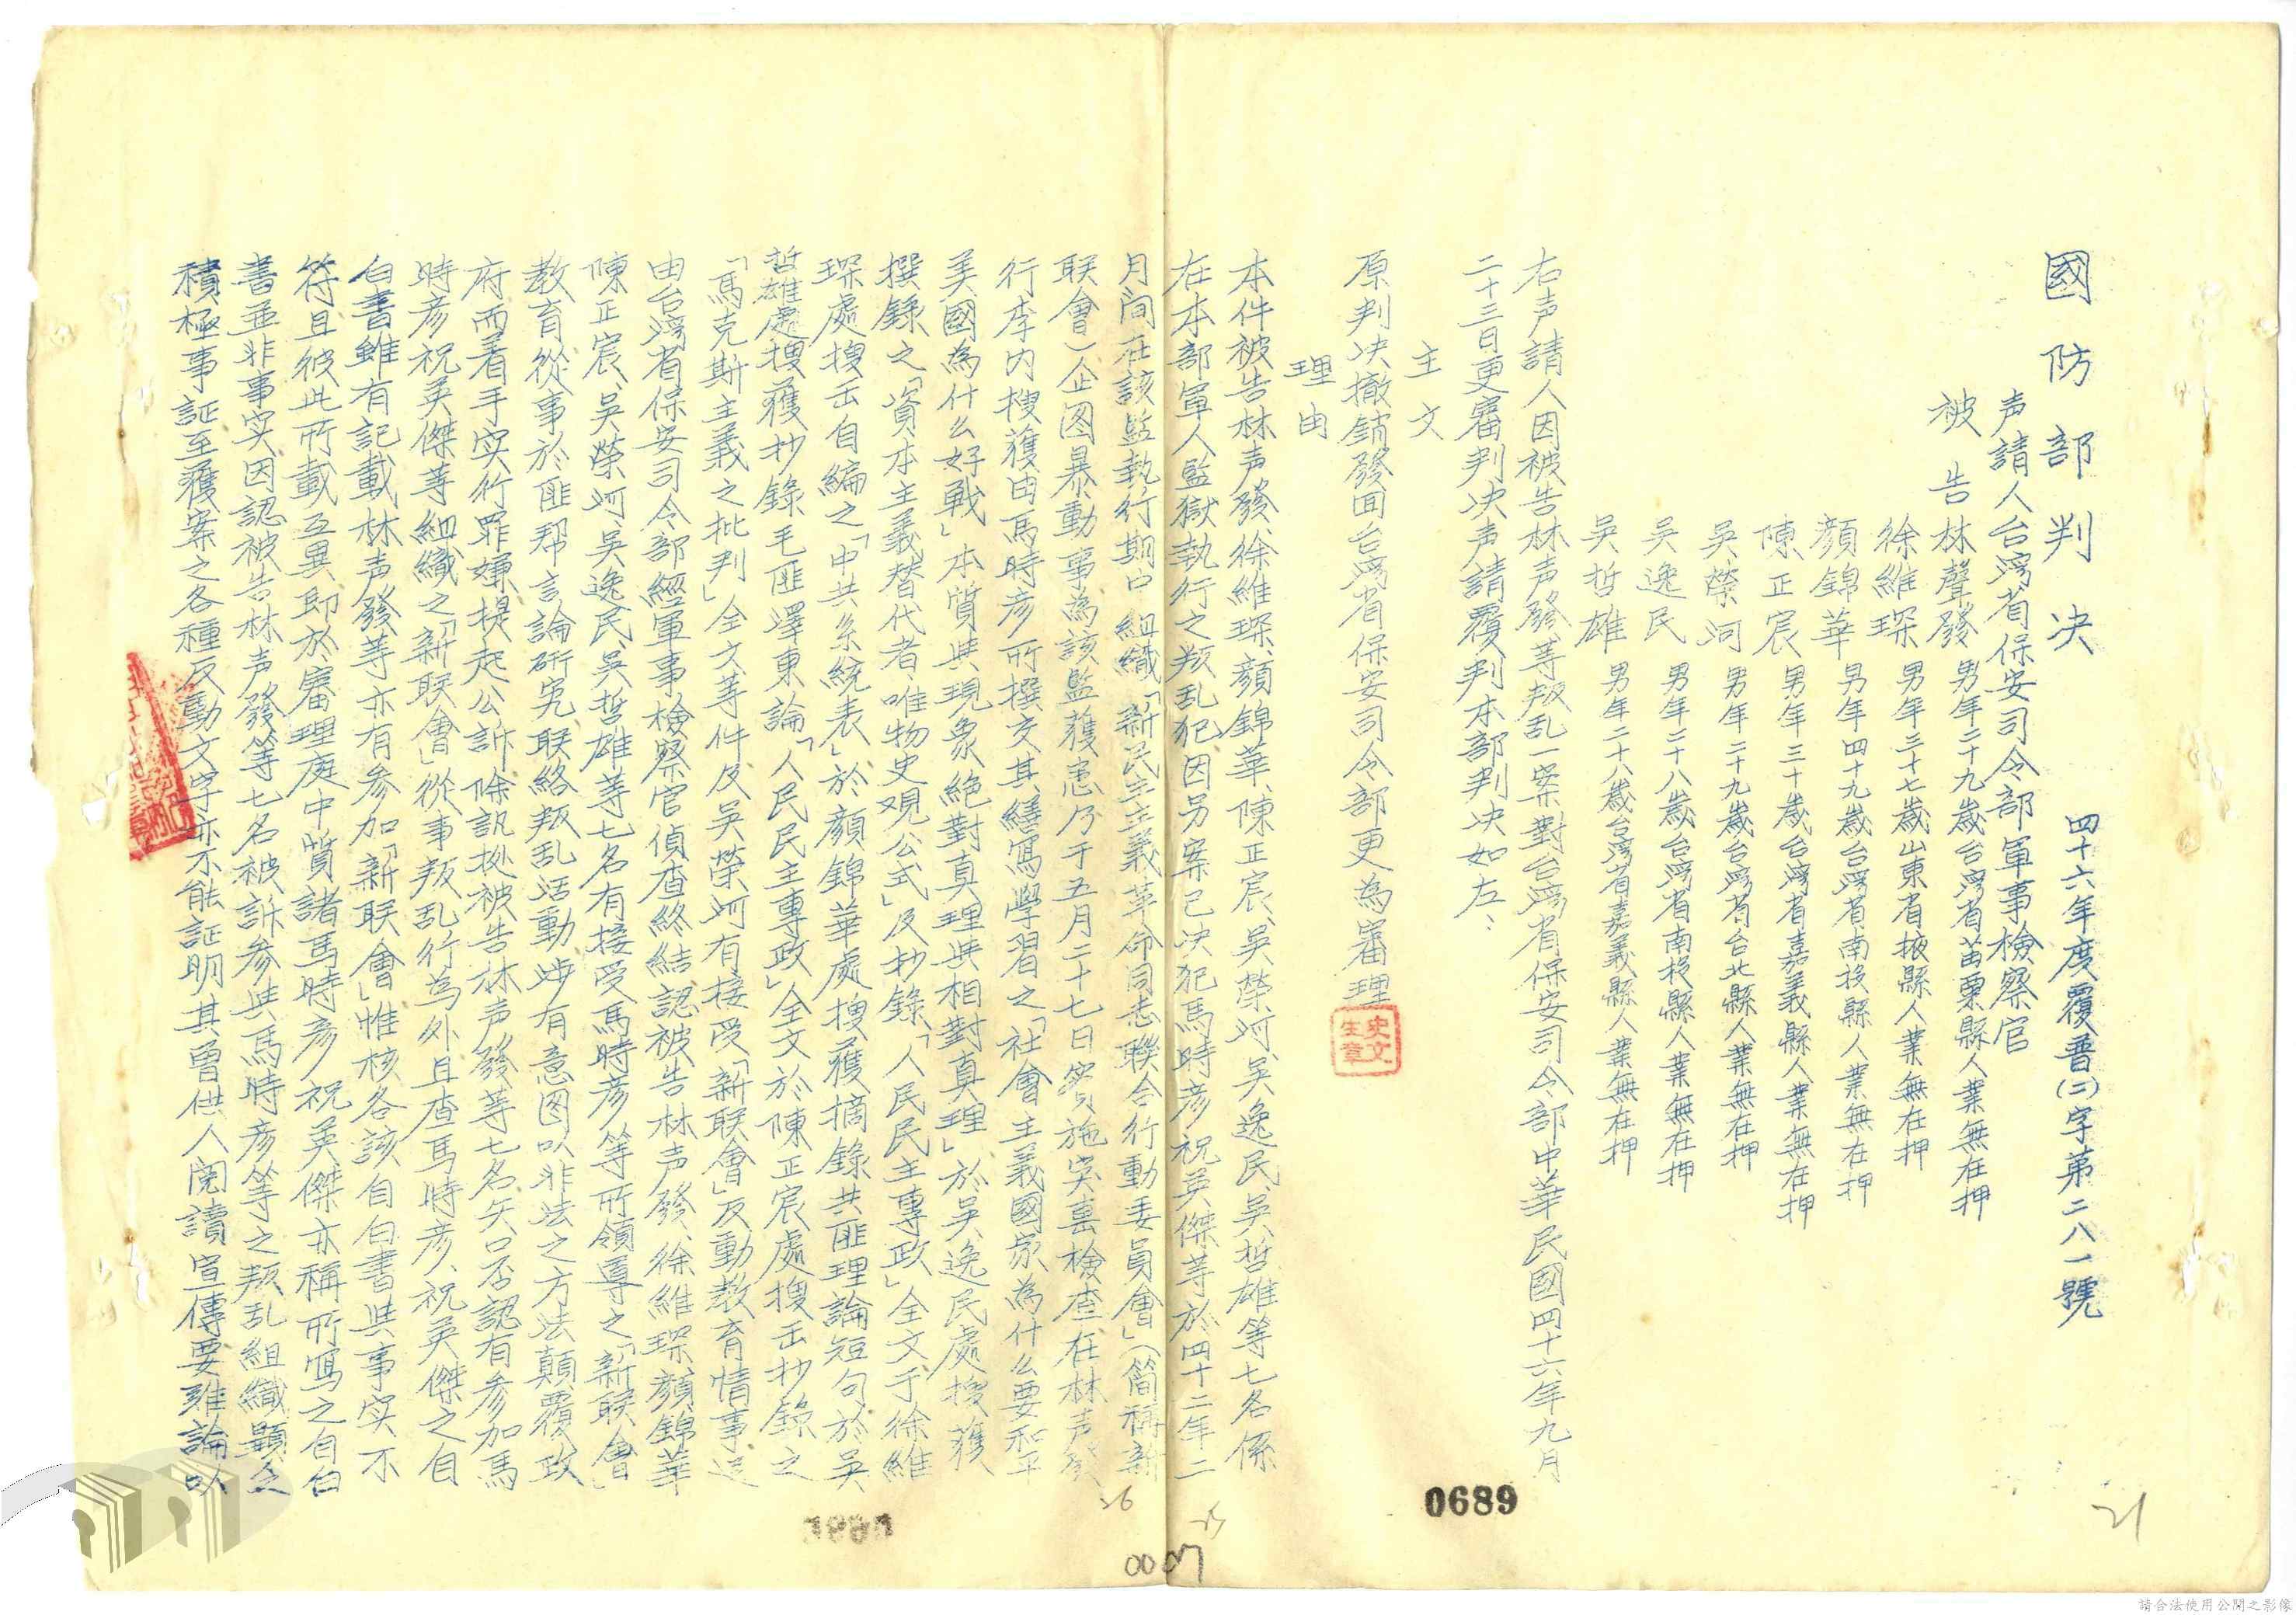 國防部判決
四十六年度覆普(二)字第二八一號
声請人台湾省保安司令部軍事檢察官
被告林聲發 男年二十九歲台湾省苗栗縣人業無在押
徐維琛 男年三十七歲山東省掖縣人業無在押
顏錦華 男年四十九歲台湾省南投縣人業無在押
陳正宸 男年三十歲台湾省嘉義縣人業無在押
吳榮河 男年二十九歲台湾省台北縣人業無在押
吳逸民 男年二十八歲台湾省南投縣人業無在押
吳哲雄 男年二十八歲台湾省嘉義縣人業無在押
右声請人因被告林声發等叛乱一案對台湾省保安司令部中華民國四十六年九月
二十三日更審判決声請覆判本部判決如左:
主文
原判決撤銷發回台湾省保安司令部更為審理
理由
本件被告林声發、徐維琛、顏錦華、陳正宸、吳榮河、吳逸民、吳哲雄等七名係
在本部軍人監獄執行之叛乱犯因另案已決犯馬時彥祝英傑等於四十二年二
月间在該監執行期口組織「新民主主義革命同志聯合行動委員會」(簡稱新
联會)企图暴動事為該監獲悉乃于五月二十七日實施突襲檢查在林声發
行李内搜獲由馬時彥所撰交其繕寫學習之「社會主義國家為什么要和平
美國為什么好戰」本質與現象絶對真理與相對真理」於吳逸民處搜獲
撰錄之「資本主義替代者、唯物史观公式」及抄錄「人民民主專政」全文于徐維
琛處搜出自編之「中共系統表」於顏錦華處搜獲摘錄共匪理論短句於吳
哲雄處搜獲抄錄毛匪澤東論「人民民主專政」全文於陳正宸處搜出抄錄之
「馬克斯主義之批判」全文等件及吳榮河有接受「新联會」反動教育情事迭
由台湾省保安司令部經軍事檢察官偵查終結認被告林声發、徐維琛顏錦華
陳正宸、吳榮河、吳逸民、吳哲雄等七名有接受馬時彥等所領導之「新联會」
教育從事於匪帮言論研究联絡叛乱活動涉有意图以非法之方法顛覆政
府而着手实行罪嫌提起公訴除訊拠被告林声發等七名矢口否認有参加馬
時彥祝英傑等組織之「新联會」從事叛乱行為外且查馬時彥、祝英傑之自
白書雖有記載林声發等亦有参加「新联會」惟核各該自白書與事实不
符且彼此所載互異即於審理庭中質諸馬時彥、祝英傑亦稱所寫之自白
書並非事实因認被告林声發等七名被訴参與馬時彥等之叛乱組織顯乏
積極事証至獲案之各種反動文字亦不能証明其曾供人閱讀宣傳要難論以
史文生章
0689
26
25
0007
21
請合法使用公開之影像